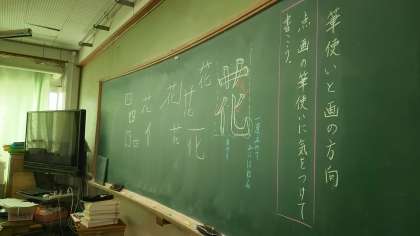 筆使いと画の方向
点画の筆使いに気をつけて
書こう。
花
花
花
花
化
花
イ